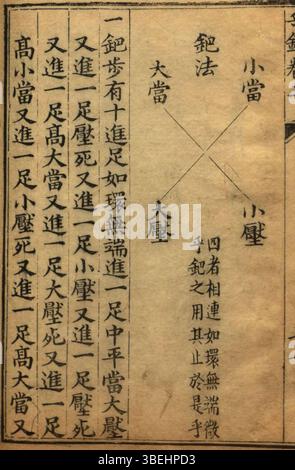 小當
鈀法
大當
小壓
大壓
四者相連如環無端微
乎鈀之用其止於是乎
一鈀步有十進足如環無端進一足中平當大壓
又進一足壓死又進一足小壓又進一足壓死
又進一足高大當又進一足大壓死又進一足
高小當又進一足小壓死又進一足高大當又
alamy
Image ID: 3BEHPD3
www.alamy.com